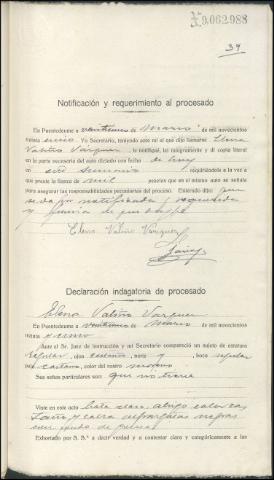 9.062.988
34
Notificación y requerimiento al procesado
En Puentedeume a veintiuno de Marzo de mil novecientos
treinta Yo Secretario, teniendo ante mí al que dijo llamarse Elena
Valiño Vazquez le notifiqué, leí íntegramente y di copia literal
en la parte necesaria del auto dictado con fecha de hoy
en este sumario requiriéndole a la vez a
que preste la fianza de mil pesetas que en el mismo auto se señala
para asegurar las responsabilidades pecuniarias del proceso. Enterado dijo: que
se da por notificada y requerida
y
Elena Valiño Vazquez
Declaración indagatoria de procesado
Elena Valiño Vazquez
En Puentedeume a veintiuno de Marzo de mil novecientos
Ante el Sr. Juez de instrucción y mi Secretario compareció un sujeto de estatura
regular, ojos castaños, nariz y boca regular
castaño, color del rostro moreno
Sus señas particulares son: que no tiene
Viste en este acto bata clara, abrigo color
y calza alpargatas negras
con piso de goma
Exhortado por S. S.ª a decir verdad y a contestar clara y categóricamente a las